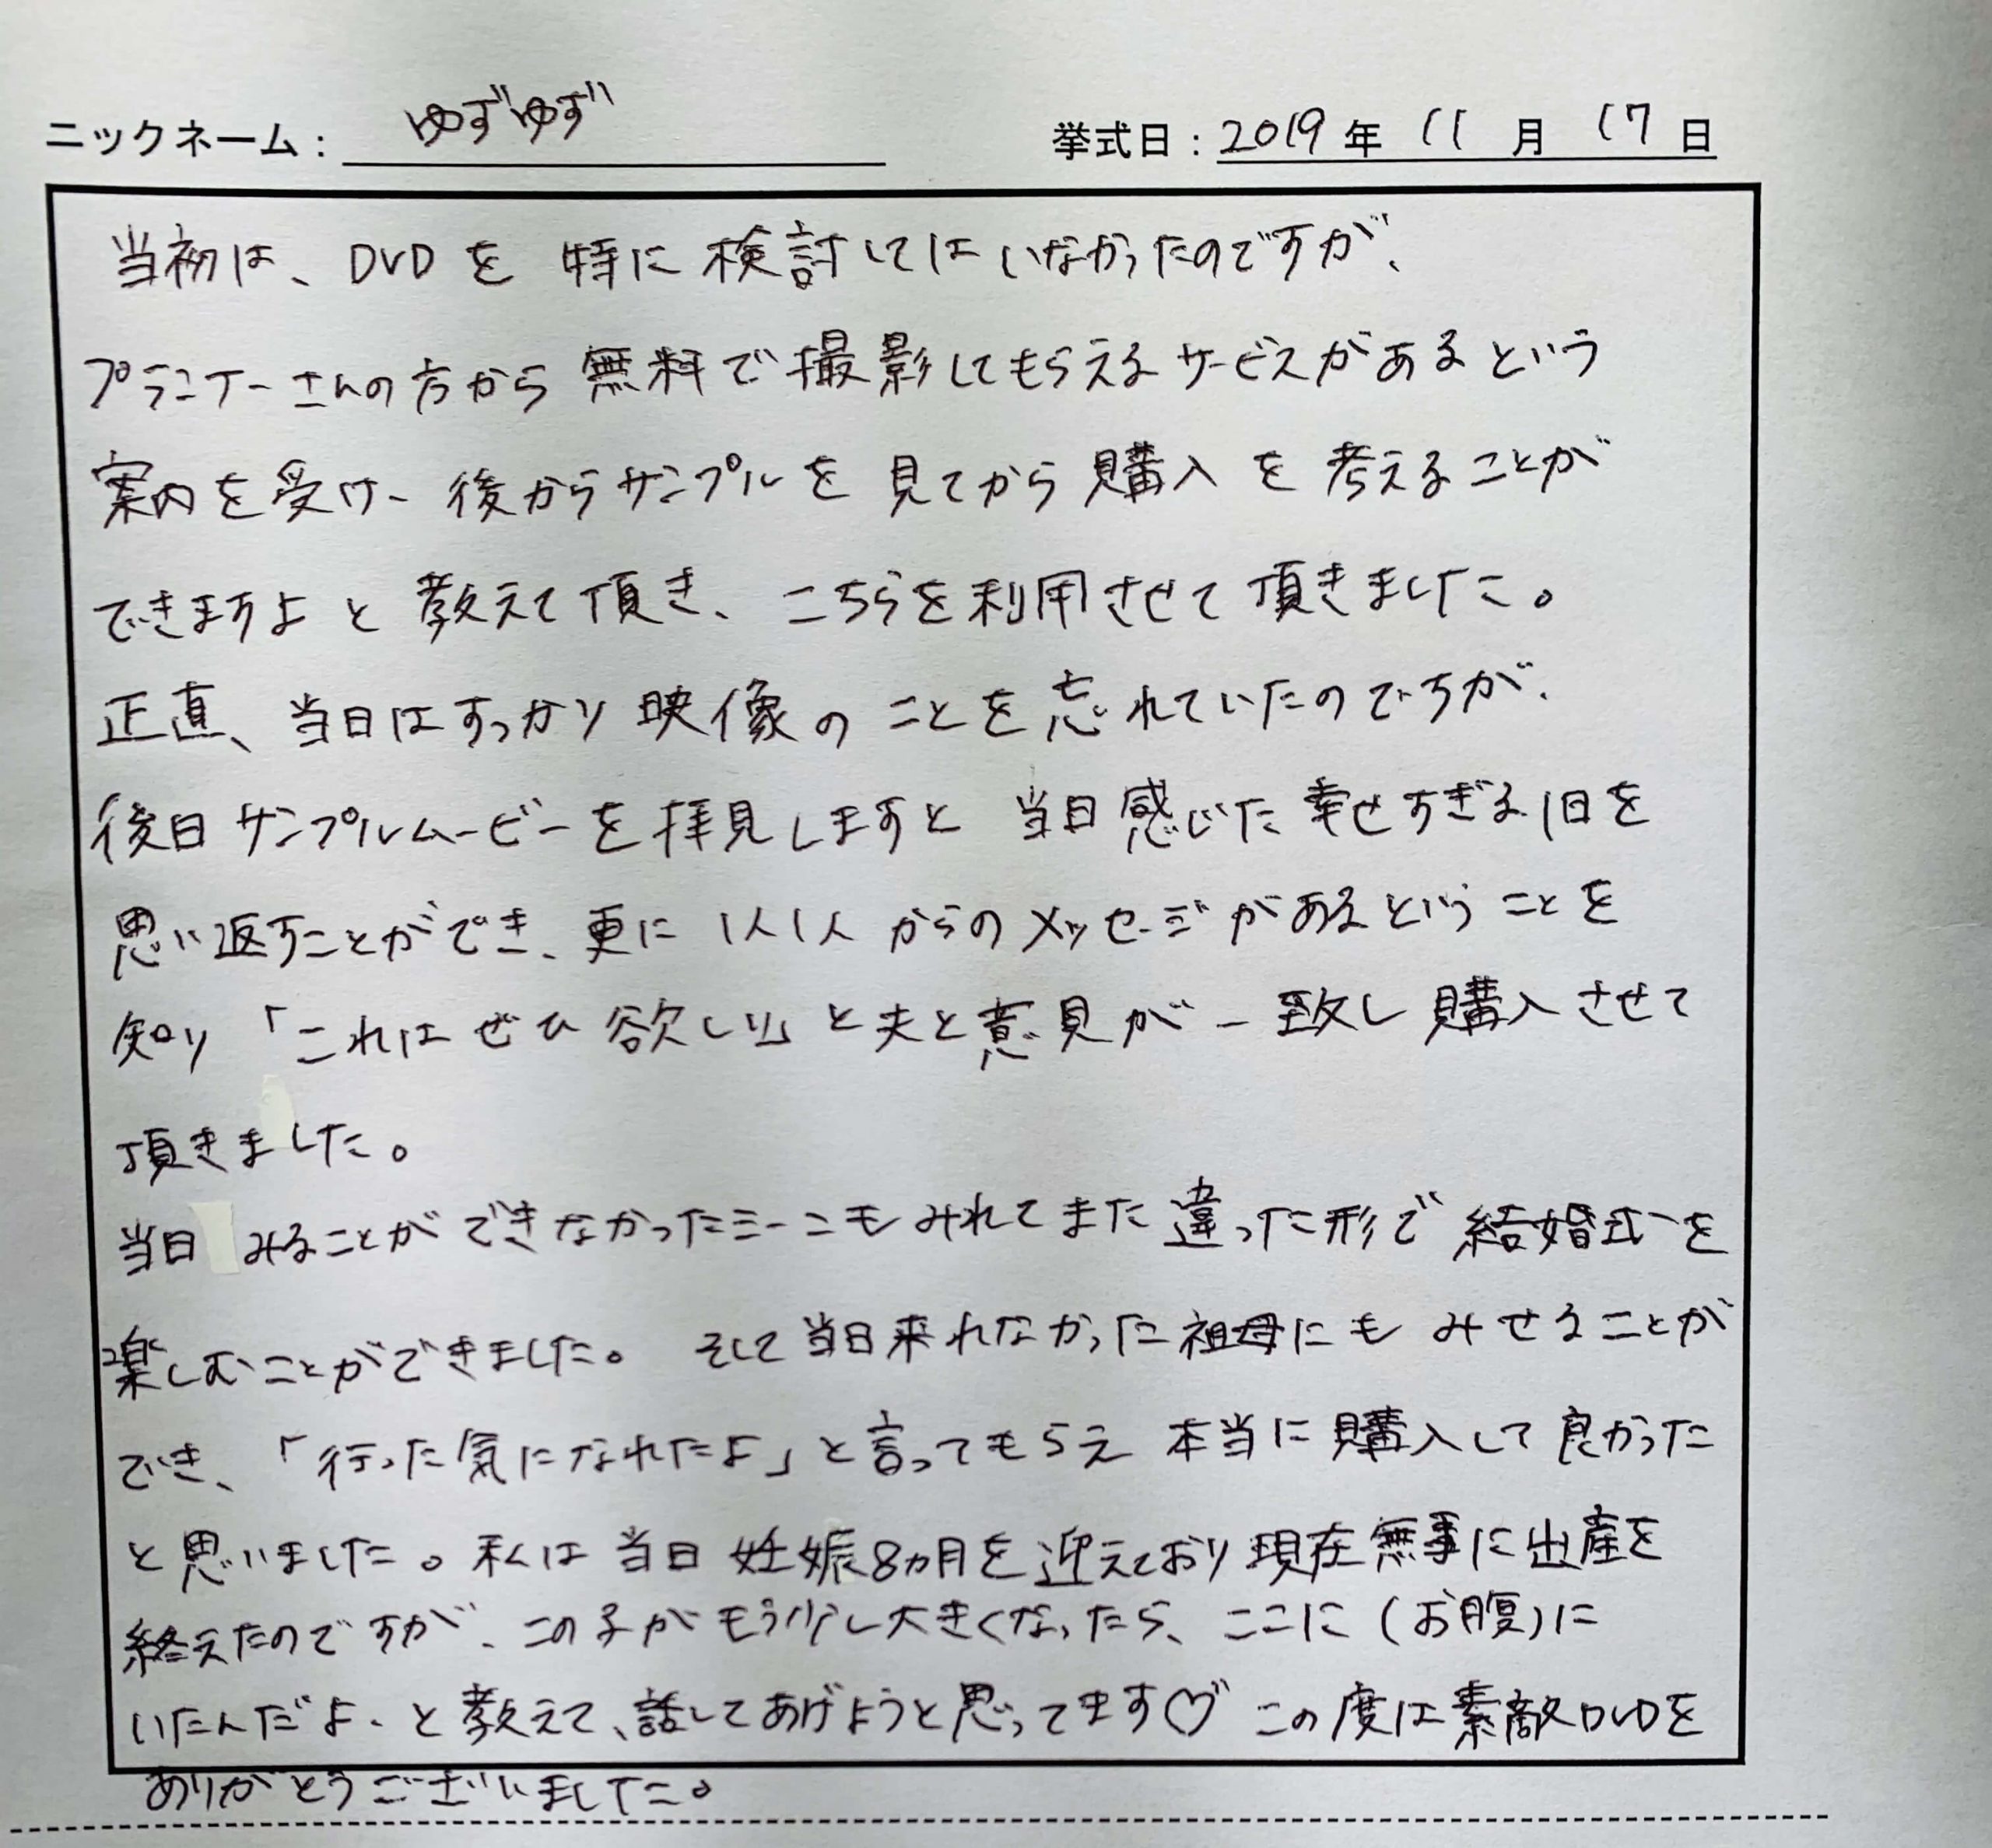 ニックネーム： ゆずゆず 挙式日：2019年 11月 17日
当初は、DVDを 特に検討してはいなかったのですが、
プランナーさんの方から無料で撮影してもらえるサービスがあるという
案内を受け、後からサンプルを見てから購入を考えることが
できますよと教えて頂き、こちらを利用させて頂きました。
正直、当日はすっかり映像のことを忘れていたのですが、
後日サンプルムービーを拝見しますと 当日感じた幸せすぎる1日を
思い返すことができ、更に1人1人からのメッセージがあるということを
知り「これはぜひ欲しい!!」と夫と意見が一致し購入させて
頂きました。
当日 みることができなかったシーンもみれてまた違った形で結婚式を
楽しむことができました。そして当日来れなかった祖母にもみせることが
でき、「行った気になれたよ」と言ってもらえ本当に購入して良かった
と思いました。私は当日妊娠8ヵ月を迎えており現在無事に出産を
終えたのですが、この子がもう少し大きくなったら、ここに(お腹)に
いたんだよ、と教えて、話してあげようと思ってます♡ この度は素敵DVDを
ありがとうございました。